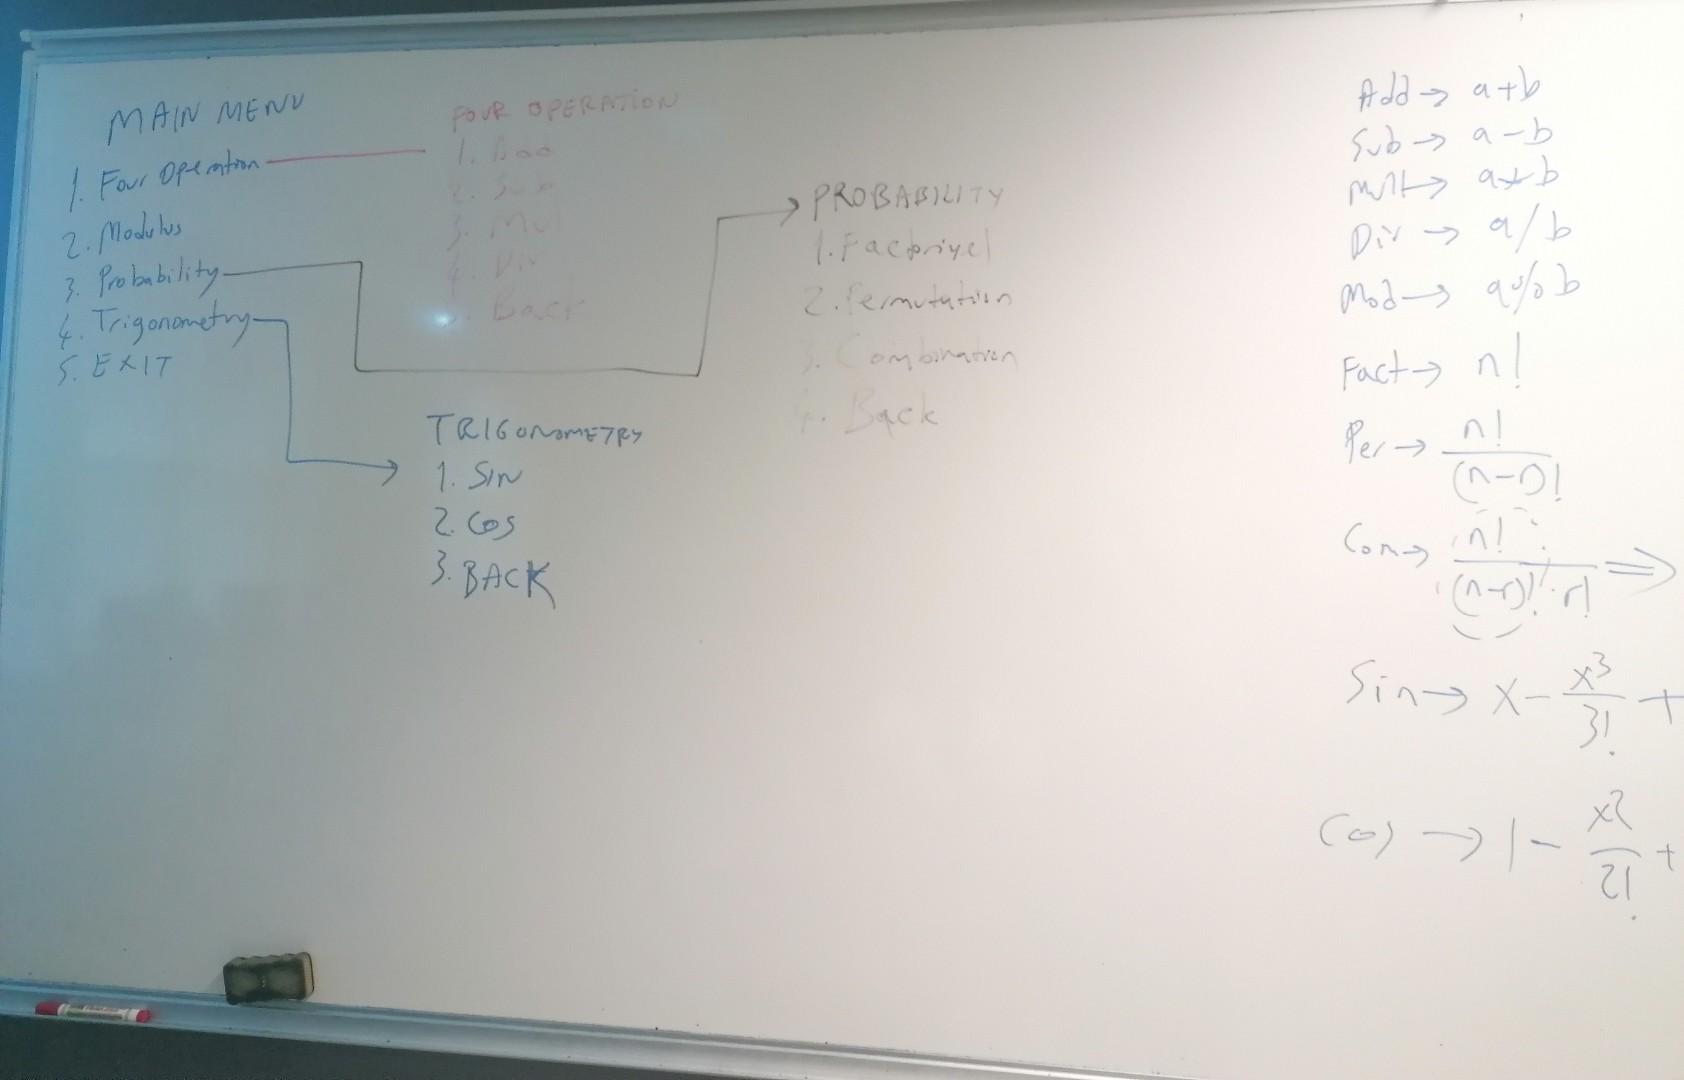 MAIN MENU
1. Four Operation
2. Modulus
3. Probability
4. Trigonometry
5. EXIT
FOUR OPERATION
1. Add
2. Sub
3. Mul
4. Div
5. Back
TRIGONOMETRY
1. SIN
2. COS
3. BACK
PROBABILITY
1. Factoriyel
2. Permutation
3. Combination
4. Back
Add → a+b
Sub → a-b
Mult → a*b
Div → a/b
Mod → a%b
Fact → n!
Per → n! / (n-r)!
Com → n! / (n-r)! · r! ⇒
Sin → x - x³/3! +
Cos → 1 - x²/2! +